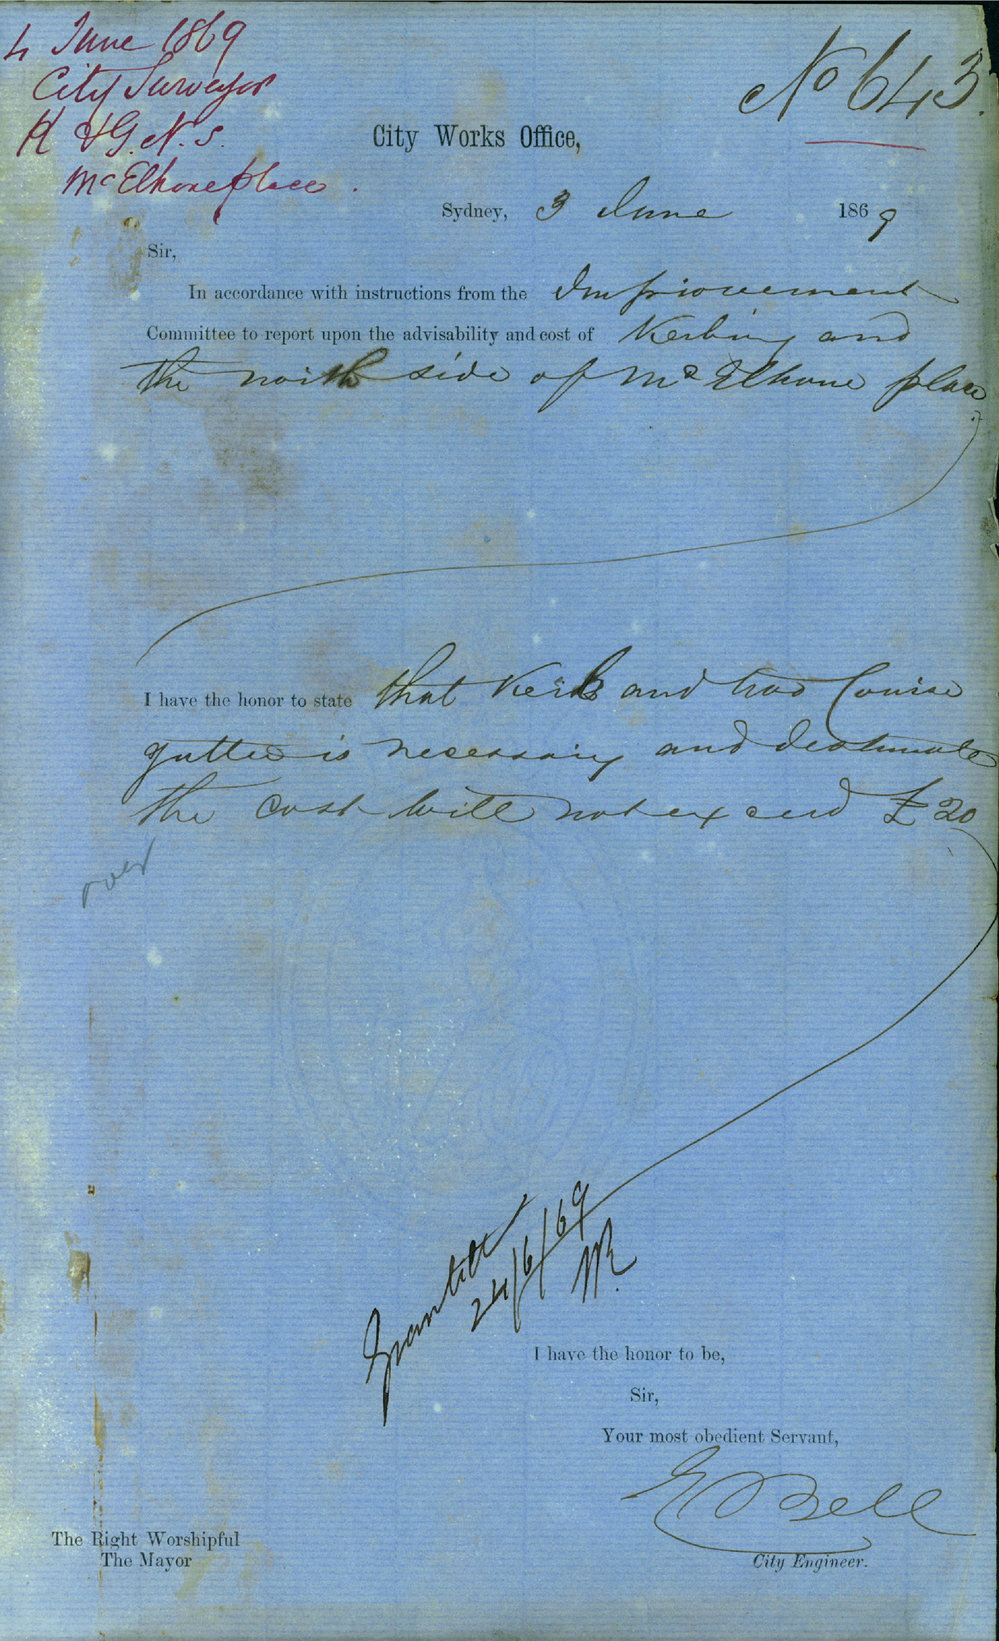 4 June 1869
City Surveyor
K & G. N. S.
McElhone place.
No 643.
City Works Office,
Sydney, 3 June 1869
Sir,
In accordance with instructions from the Improvement
Committee to report upon the advisability and cost of Kerbing and
the north side of McElhone place
I have the honor to state that Kerb and two Course
gutter is necessary and destimate
the cost will not exceed £20
over
Granted
24/6/69
I have the honor to be,
Sir,
Your most obedient Servant,
E Bell
City Engineer.
The Right Worshipful
The Mayor